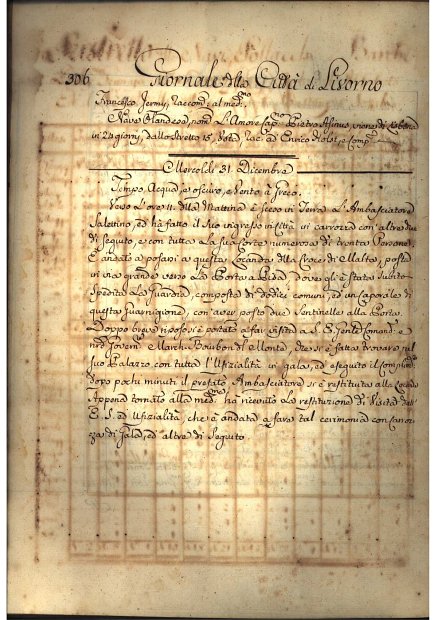 306 Giornale della Città di Livorno
Francesco Jermy, raccomd. al medmo
Nave Olandese nomta L'Amore Capno Pietro Asmus, viene di Lisbona
in 24 giorni, dallo stretto 15, Vota, racc. ad Enrico Holst, e Compi
Mercoldì 31 Dicembre
Tempo Acqua, e oscuro, e Vento a Greco.
Verso l'ore 11 della Mattina è sceso in Terra L'Ambasciatore
Salettino, ed ha fatto il suo ingresso in Città in carrozza con altre due
di seguito, e con tutta la sua Corte numerosa di trenta Persone.
È andato a posarsi a questa Locanda della Croce di Malta, posta
in via grande verso La Porta a Pisa, dove gli è stata subito
Spedita La Guardia, composta di dodici comuni, ed un Caporale di
questa Guarnigione, con aver posto due Sentinelle alla Porta.
Doppo breve riposo si è portato a far visita a S. E. Genle Comandte e
nro Govern. March. Bourbon del Monte, che si è fatta trovare nel
suo Palazzo con tutta l'Ufizialità in gala, ed eseguito il complimto
dopo pochi minuti il prefato Ambasciatore si è restituito alla Locanda
Appena tornato alla medma ha ricevuto La restituzione di Visita dall'
E. S. ed Ufizialità, che è andata a fare tal cerimonia con Carroz
za di Gala, ed altre di Seguito